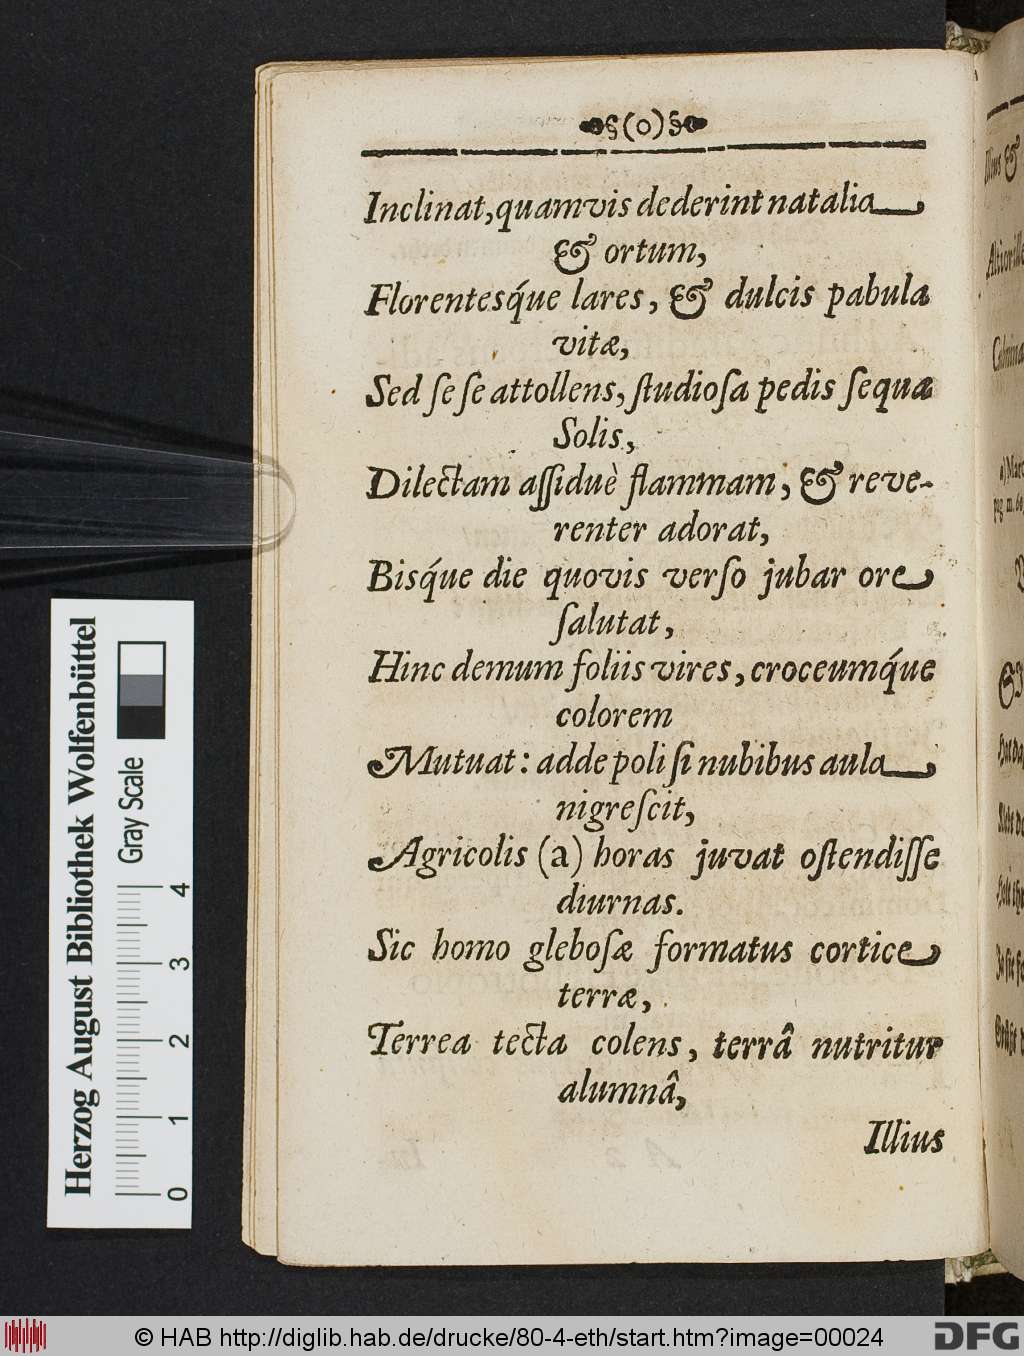 §(o)§
Inclinat, quamvis dederint natalia
& ortum,
Florentesq́ue lares, & dulcis pabula
vitæ,
Sed ſe ſe attollens, ſtudioſa pedis ſequa
Solis,
Dilectam aſſiduè flammam, & reve-
renter adorat,
Bisq́ue die quovis verſo jubar ore
ſalutat,
Hinc demum foliis vires, croceumq́ue
colorem
Mutuat: adde poli ſi nubibus aula
nigreſcit,
Agricolis (a) horas juvat oſtendiſſe
diurnas.
Sic homo gleboſæ formatus cortice
terræ,
Terrea tecta colens, terrâ nutritur
alumnâ,
Illius
Herzog August Bibliothek Wolfenbüttel
Gray Scale
0 1 2 3 4
© HAB http://diglib.hab.de/drucke/80-4-eth/start.htm?image=00024
DFG